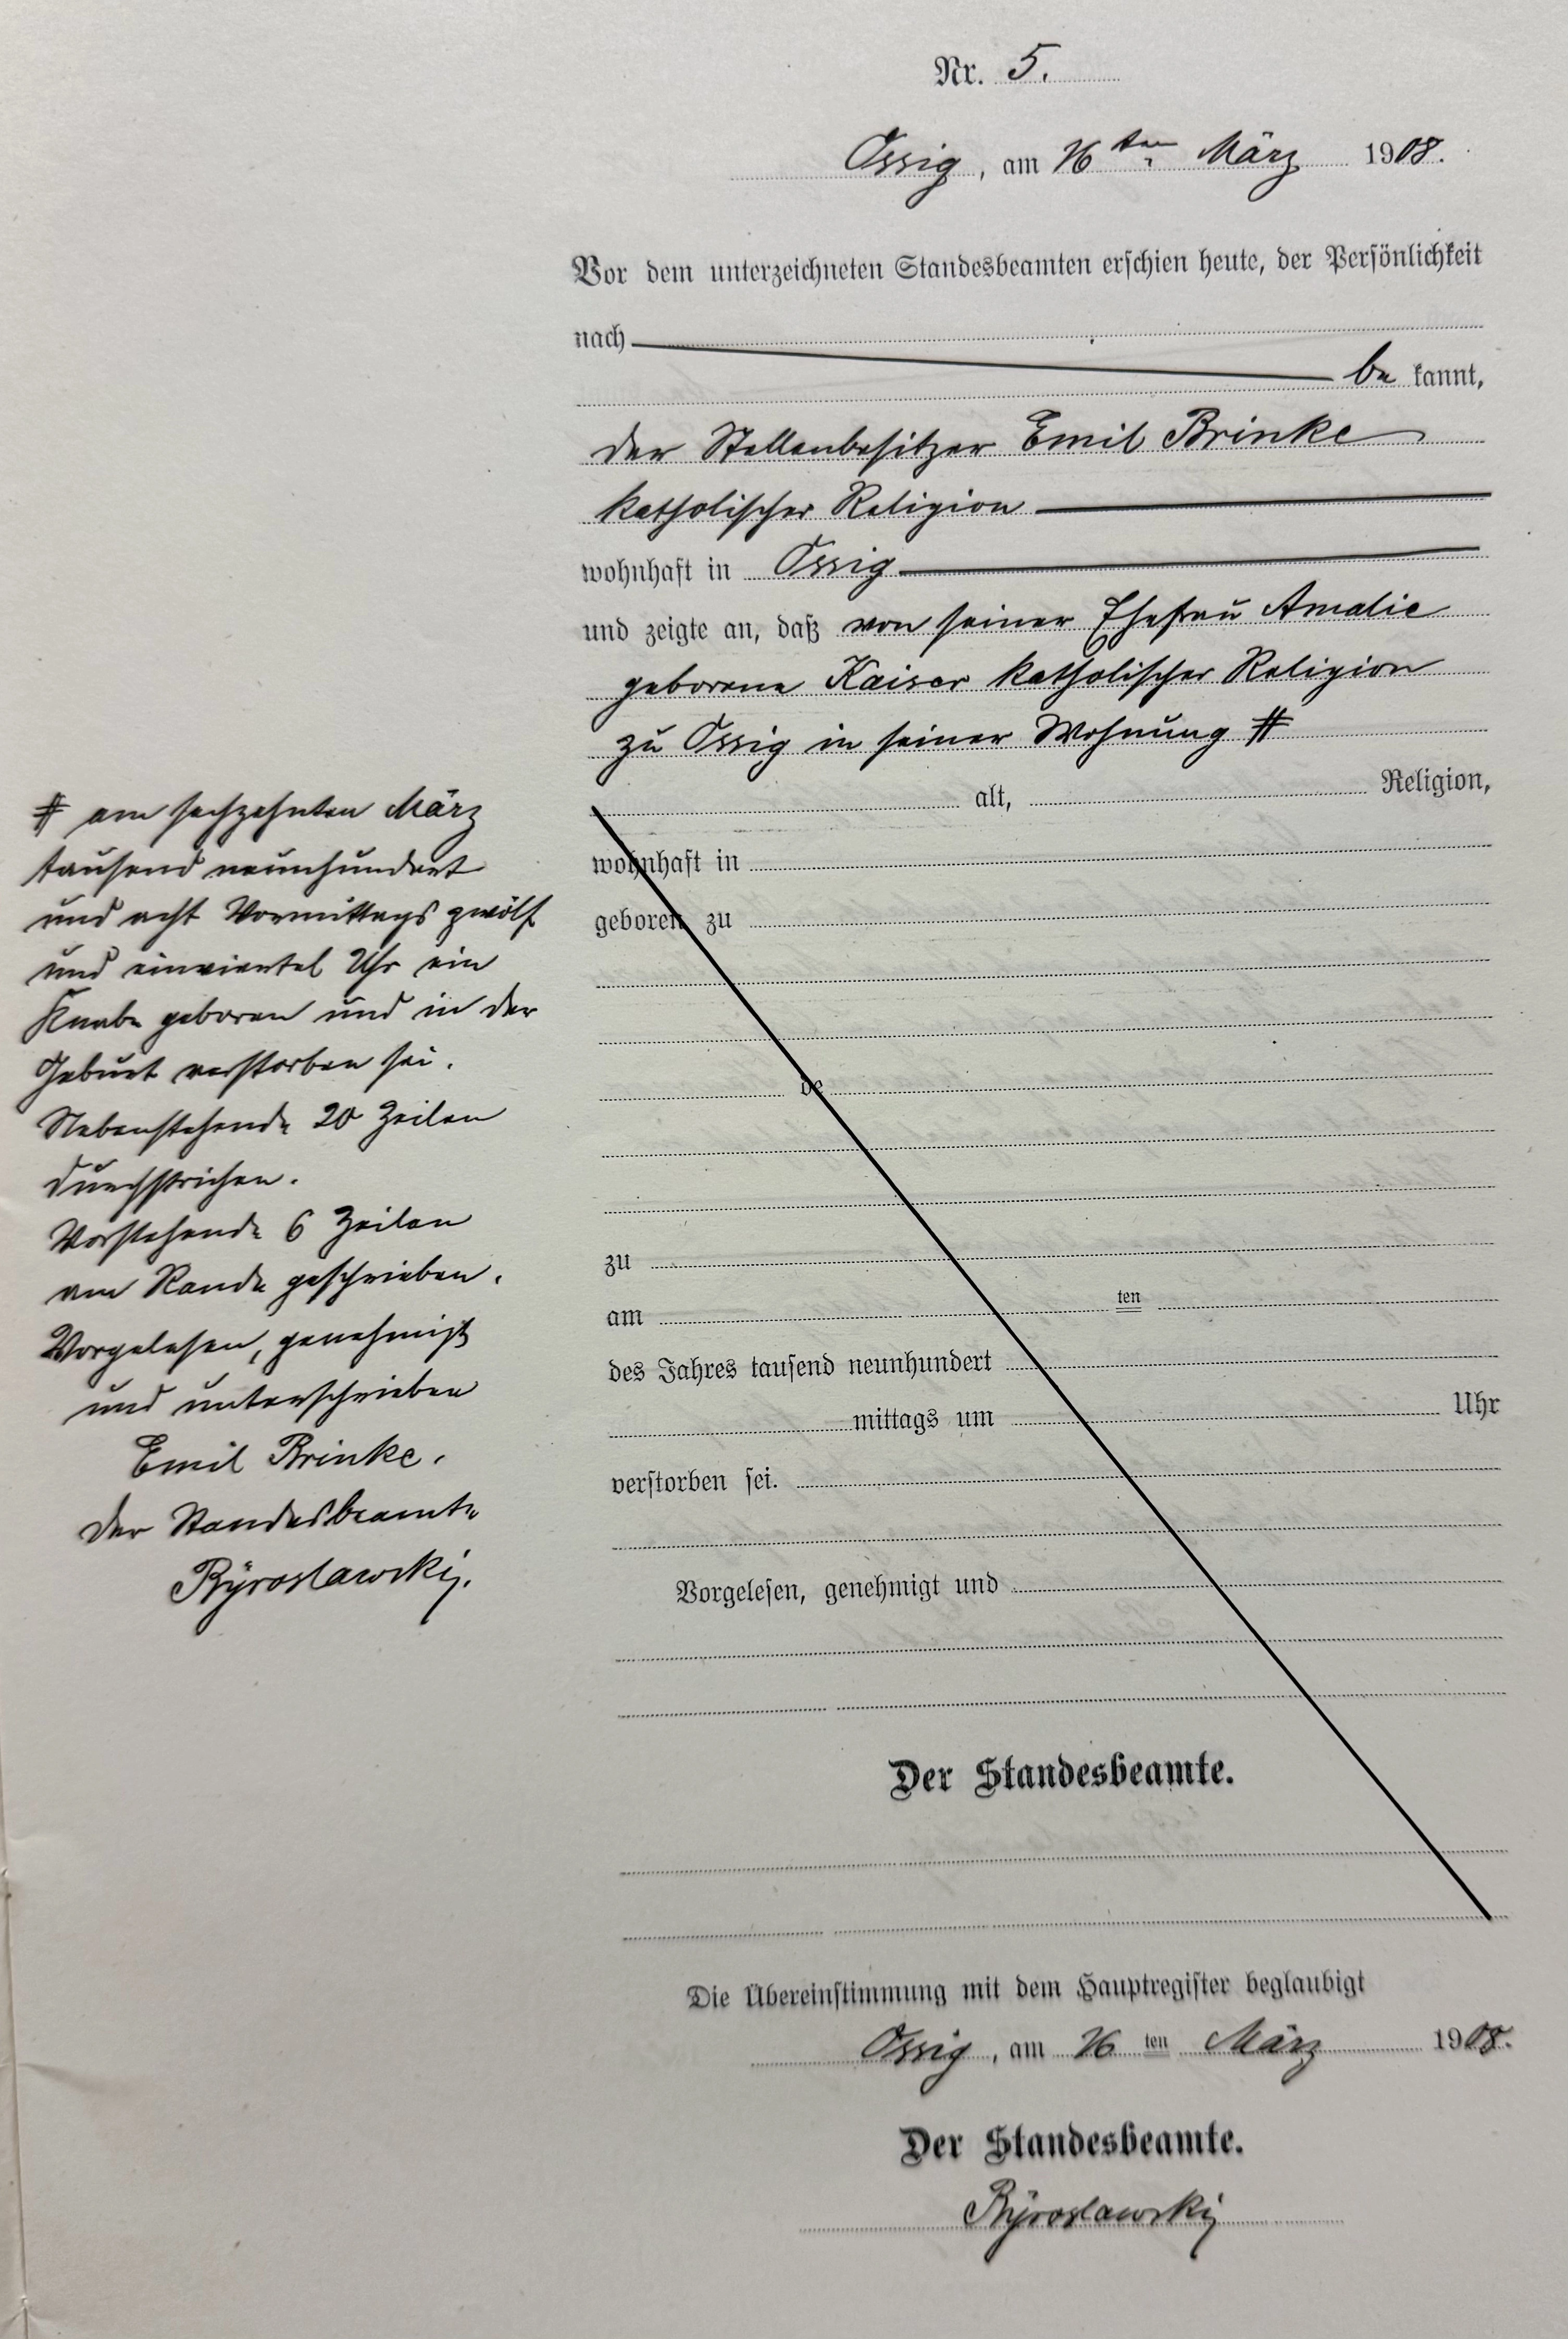 Nr. 5.
Ossig, am 16ten März 1908.
Vor dem unterzeichneten Standesbeamten erschien heute, der Persönlichkeit
nach
be kannt,
der Stellenbesitzer Emil Brinke
katholischer Religion
wohnhaft in Ossig
und zeigte an, daß von seiner Ehefrau Amalie
geborene Kaiser katholischer Religion
zu Ossig in seiner Wohnung #
alt, Religion,
wohnhaft in
geboren zu
de
zu
am ten
des Jahres tausend neunhundert
mittags um Uhr
verstorben sei.
Vorgelesen, genehmigt und
Der Standesbeamte.
# am sechzehnten März
tausend neunhundert
und acht Vormittags zwölf
und einviertel Uhr ein
Knabe geboren und in der
Geburt verstorben sei.
Nebenstehende 20 Zeilen
durchstrichen.
Vorstehende 6 Zeilen
am Rande geschrieben.
Vorgelesen, genehmigt
und unterschrieben
Emil Brinke.
Der Standesbeamte
Die Übereinstimmung mit dem Hauptregister beglaubigt
Ossig, am 16 ten März 1908.
Der Standesbeamte.